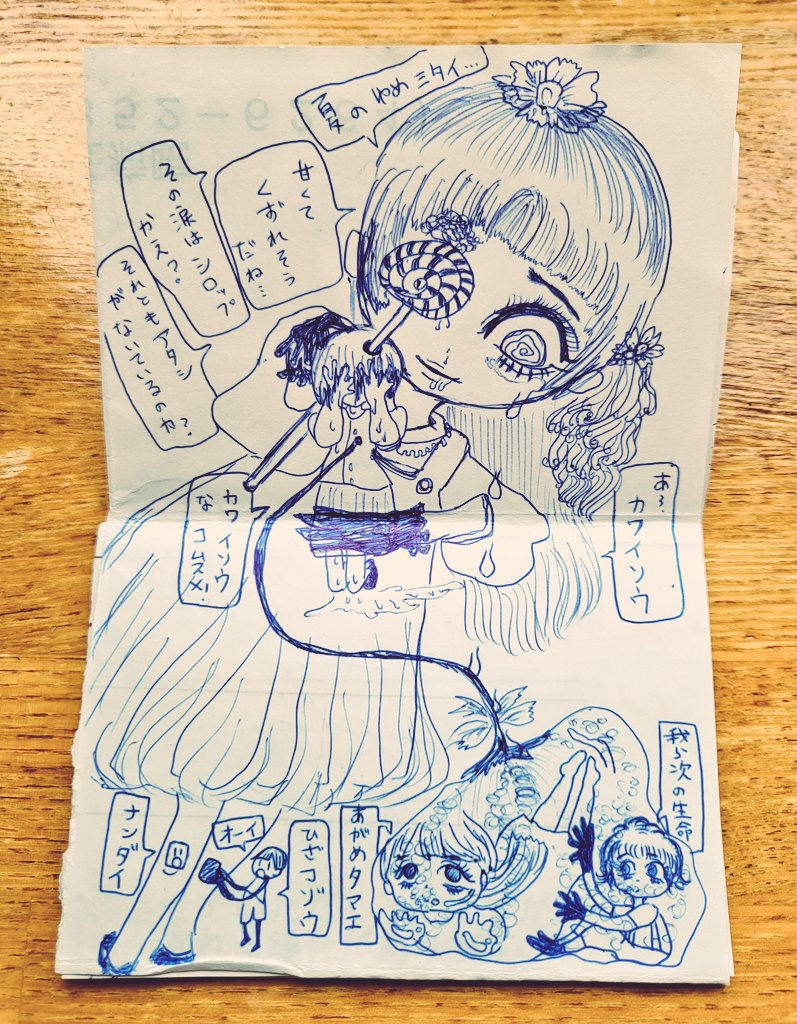 夏のゆめミタイ…
甘くて
くずれそう
だね…
その涙はシロップ
かえ?
それともアタシ
がないているのか?
あゝ、
カワイソウ
カワイソウ
なコムスメ!
我ら次の生命
あがめタマエ
ひざコゾウ
オーイ
ナンダイ